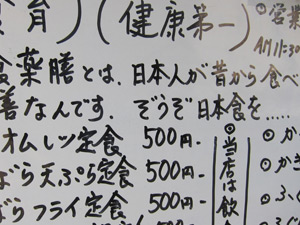 食育）（健康第一）◎営業
AM11:30
食薬膳とは、日本人が昔から食べ
善なんです. ぞうぞ日本食を.....
オムレツ定食 500円-
ばら天ぷら定食 500円-
ばらフライ定食 500円-
500円-
◎当店は飲食
◎か
か
◎ふ
ふぐ